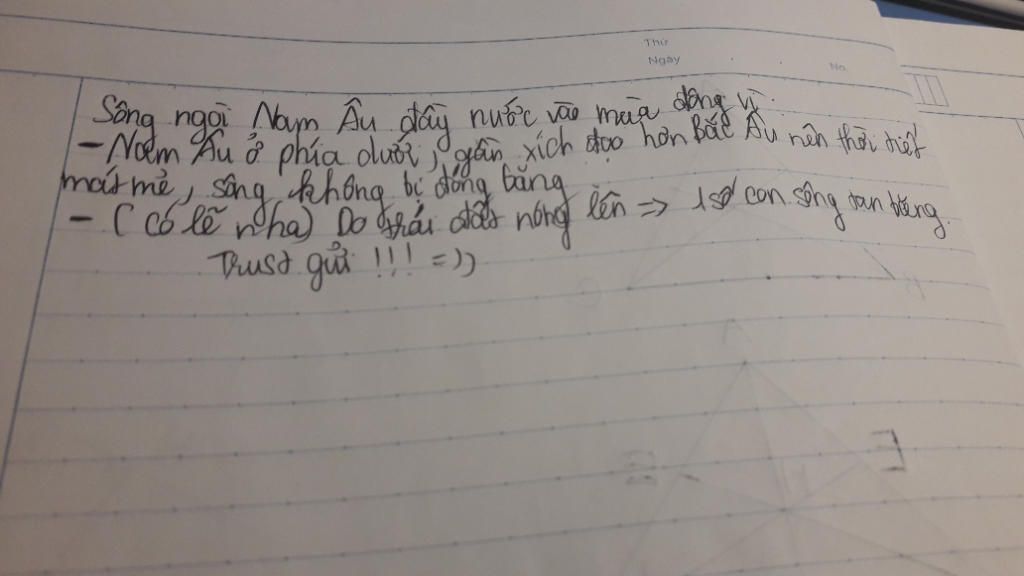 Thứ
Ngày
No.
Sông ngòi Nam Âu đầy nước vào mùa đông vì:
- Nam Âu ở phía dưới, gần xích đạo hơn Bắc Âu nên thời tiết
mát mẻ, sông không bị đóng băng
- (Có lẽ nha) Do trái đất nóng lên => 1 số con sông tan băng.
Trust gửi !!! =))